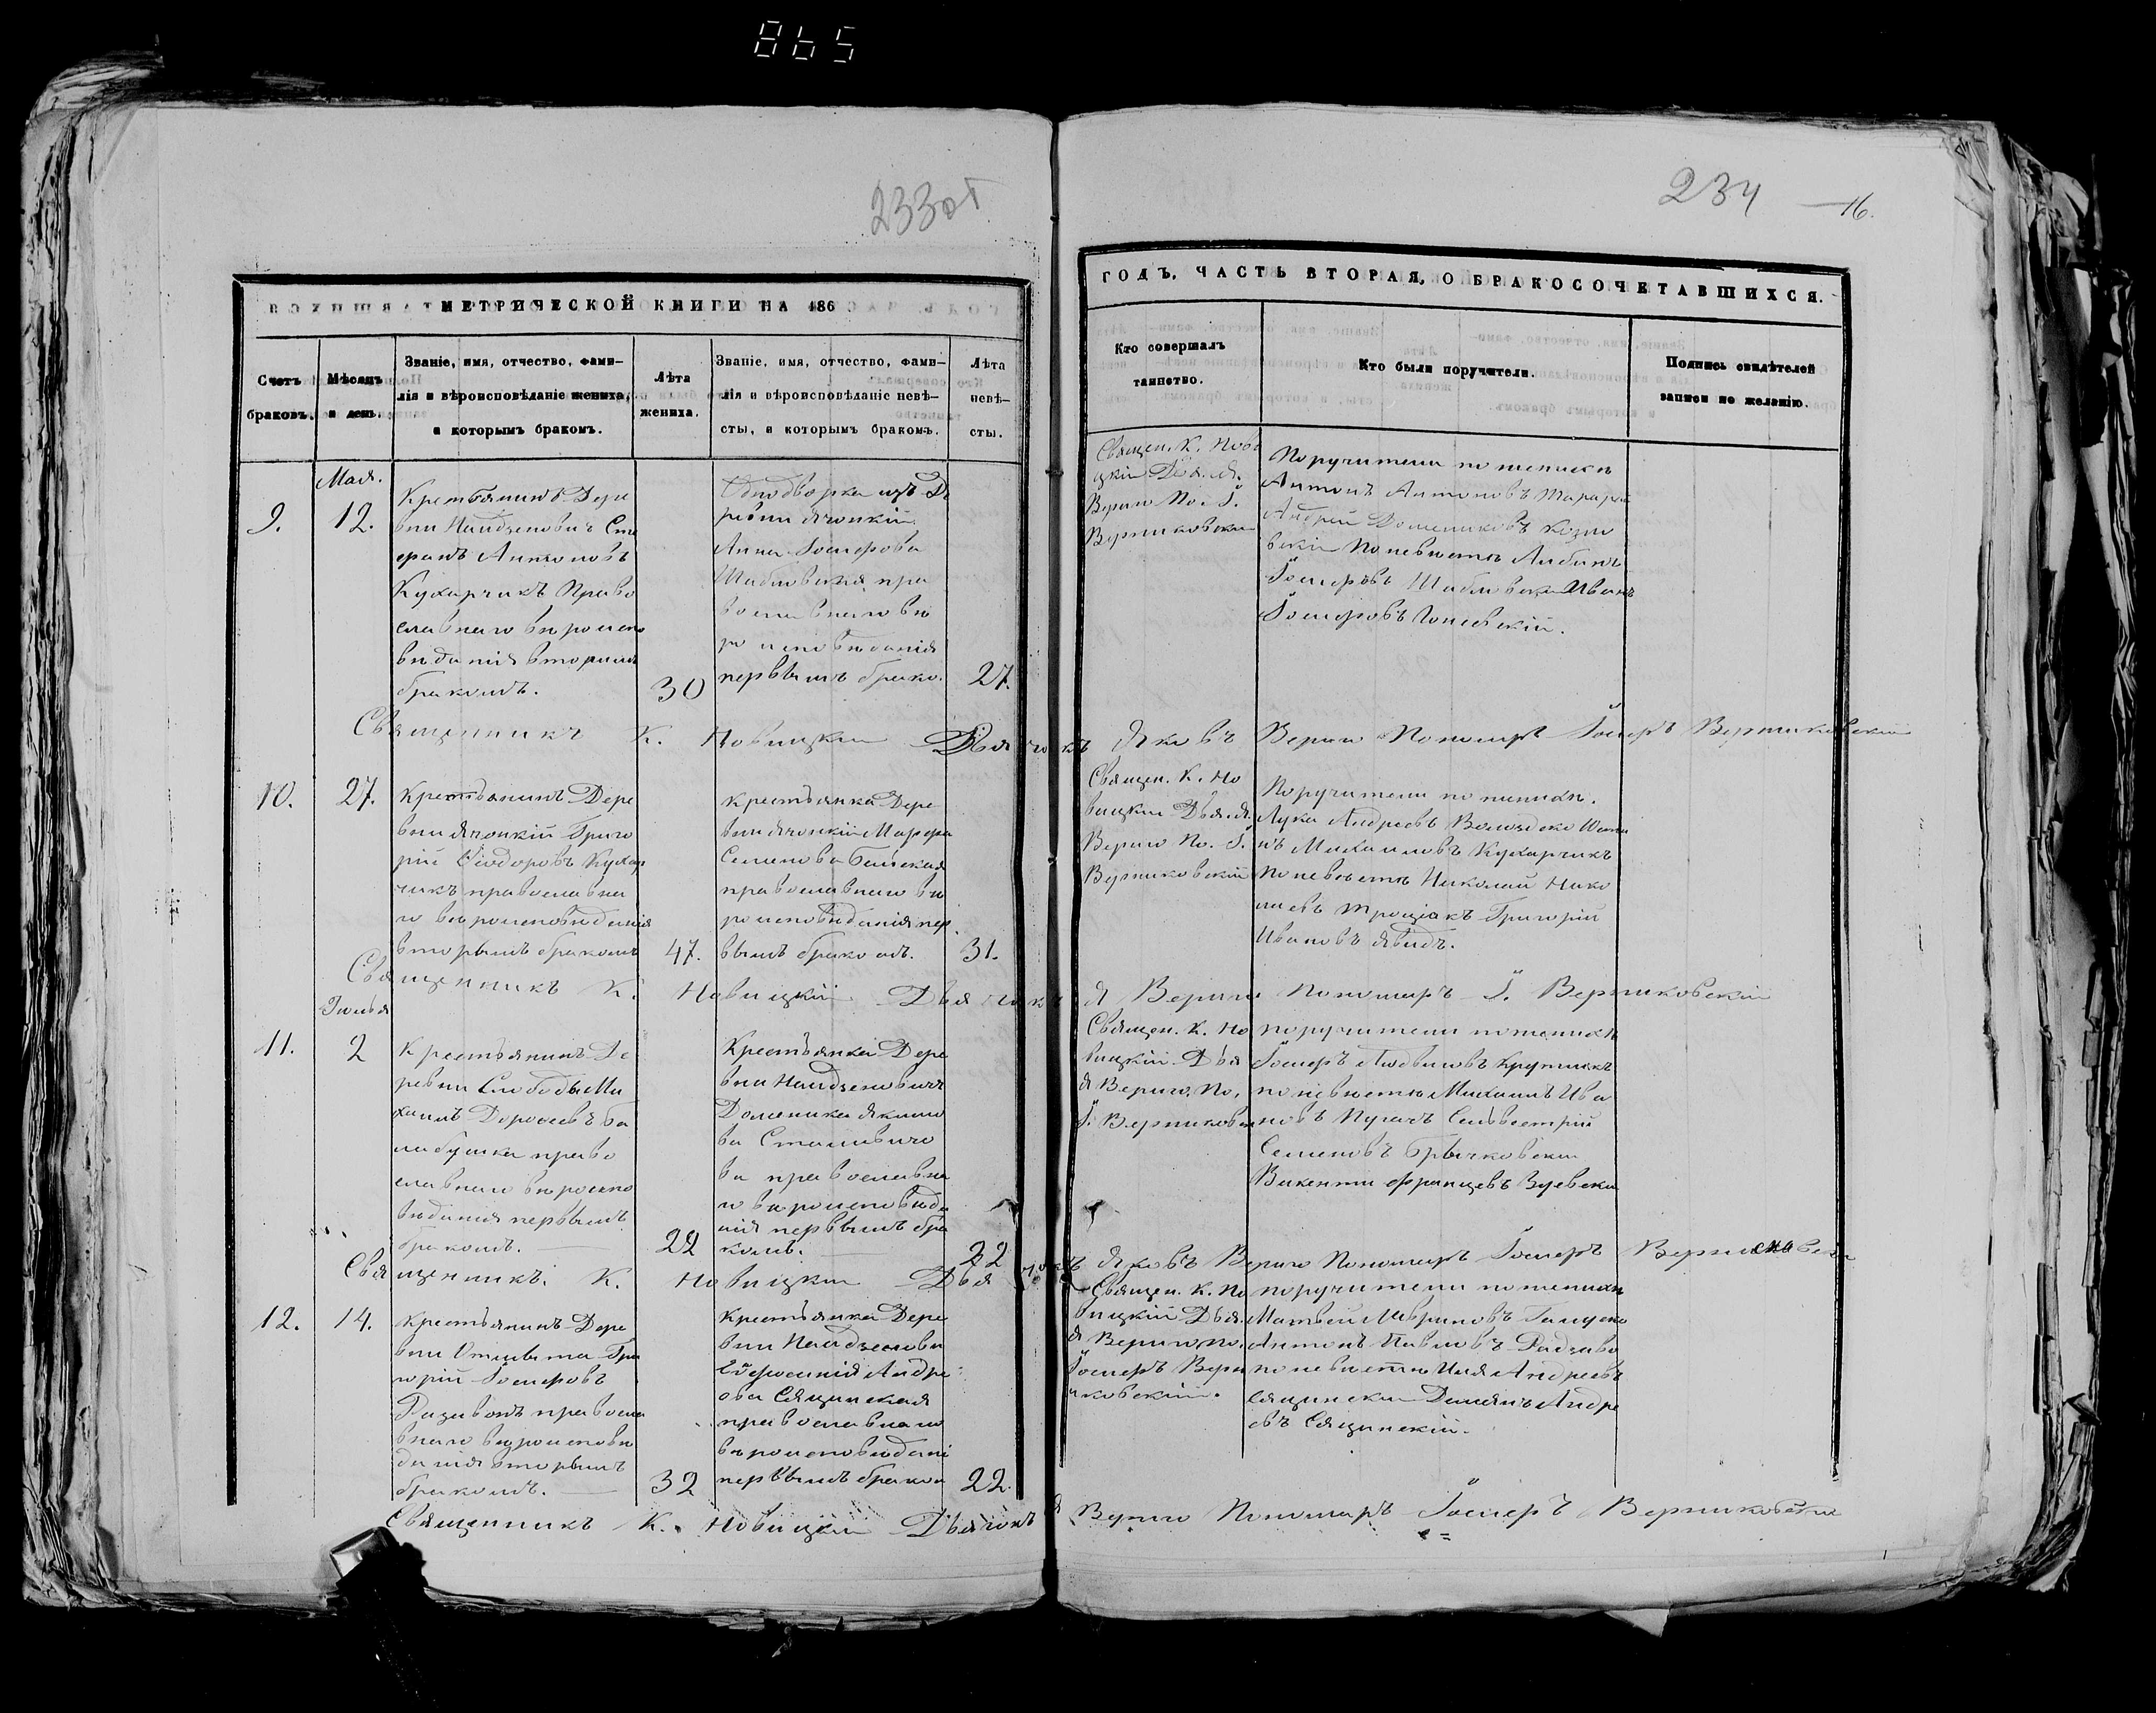 865
233об
234
16.
МЕТРИЧЕСКОЙ КНИГИ НА 186
ГОДЪ, ЧАСТЬ ВТОРАЯ, О БРАКОСОЧЕТАВШИХСЯ.
Счетъ
браковъ.
Мѣсяцъ
и день.
Званіе, имя, отчество, фами-
лія и вѣроисповѣданіе жениха,
и которымъ бракомъ.
Лѣта
жениха.
Званіе, имя, отчество, фами-
лія и вѣроисповѣданіе невѣ-
сты, и которымъ бракомъ.
Лѣта
невѣ-
сты.
Кто совершалъ
таинство.
Кто были поручители.
Подпись свидѣтелей
записи по желанію.
9.
Мая.
12.
Крестьянинъ Дере
вни
Сте
фанъ Антоновъ
Кухарчикъ Право
славнаго вѣроиспо
вѣданія вторымъ
бракомъ.
30
Однодворка изъ Де
ревни
Анна Іосифова
Шабловская пра
вославнаго вѣ
роисповѣданія
первымъ брако.
27.
Священ. К. Нови
цкій Дья. Я.
Вериго По. І.
Верниковскій
Поручители по женихѣ
Антонъ Антоновъ
Андрей Доминиковъ Козло
вскій По невѣстѣ Албинъ
Іосифовъ Шабловскій Иванъ
Іосифовъ
Священникъ К. Новицкій Дьячокъ Яковъ Вериго Пономарь Іосифъ Верниковскій
10.
27.
Крестьянинъ Дере
вни Ячонкій Григо
рій Ѳіодоровъ Кухар
чикъ православна
го вѣроисповѣданія
вторымъ бракомъ
47.
Крестьянка Дере
вни Ячонкій Марфа
Семенова
православнаго вѣ
роисповѣданія пер
вымъ бракомъ.
31.
Священ. К. Но
вицкій Дья. Я.
Вериго По. І.
Верниковскій
Поручители по женихѣ.
Лука Андреевъ
нъ Михаиловъ Кухарчикъ
По невѣстѣ Николай Нико
лаевъ Троціакъ Григорій
Ивановъ
Священникъ К. Новицкій Дьячокъ Я Вериго Пономарь І. Верниковскій
Іюлья
11.
2
Крестьянинъ Де
ревни Слободы Ми
хаилъ Дорофеевъ Ба
лабушка право
славнаго вѣроиспо
вѣданія первымъ
бракомъ.
22
Крестьянка Дере
вни
Доминика Якимо
ва
ва православна
го вѣроисповѣда
нія первымъ бра
комъ.
22
Священ. К. Но
вицкій Дья
Я Вериго, По.
І. Верниковск
поручители по женихѣ
Іосифъ Людвиковъ Крутикъ
по невѣстѣ Михаилъ Ива
новъ Пугачъ Сильвестрій
Семеновъ
Викентій Францевъ
Священникъ. К. Новицкій Дьячокъ Яковъ Вериго Пономарь Іосифъ Верниковскій
12.
14.
Крестьянинъ Дере
вни Гри
горій Іосифовъ
православ
наго вѣроисповѣ
данія вторымъ
бракомъ.
32
Крестьянка Дере
вни
Андре
ова Сяцинская
православнаго
вѣроисповѣдані
первымъ браком
22.
Священ. К. Но
вицкій Дья.
Я Вериго По.
Іосифъ Верн
иковскій.
поручители по женихѣ
Матвей
Антонъ Павловъ
по невѣстѣ Илія Андреевъ
Сяцинскій Демянъ Андре
евъ Сяцинскій.
Священникъ К. Новицкій Дьячокъ Я Вериго Пономарь Іосифъ Верниковскій